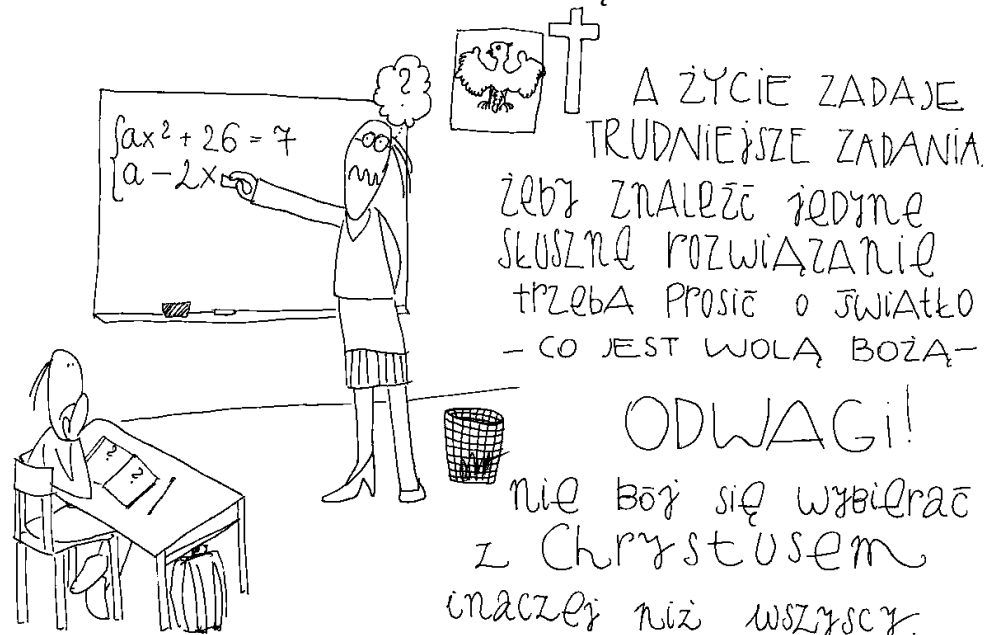 ?
{ax² + 26 = 7
{a - 2x
? ?
A ŻYCIE ZADAJE
TRUDNIEJSZE ZADANIA.
żeby ZNALEŹĆ jedyne
słuszne rozwiązanie
trzeba prosić o światło
- CO JEST WOLĄ BOŻĄ -
ODWAGi!
nie bój się wybierać
z Chrystusem
inaczej niż wszyscy.